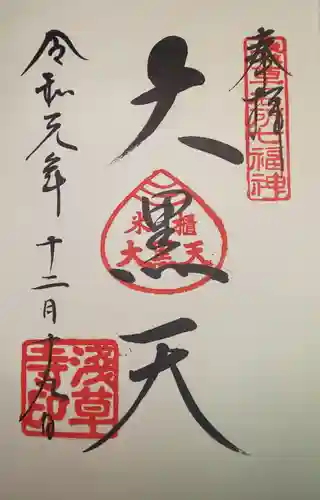 奉拝
浅草名所七福神
大黒天
米櫃
大黒天
令和元年十二月十九日
浅草
寺印